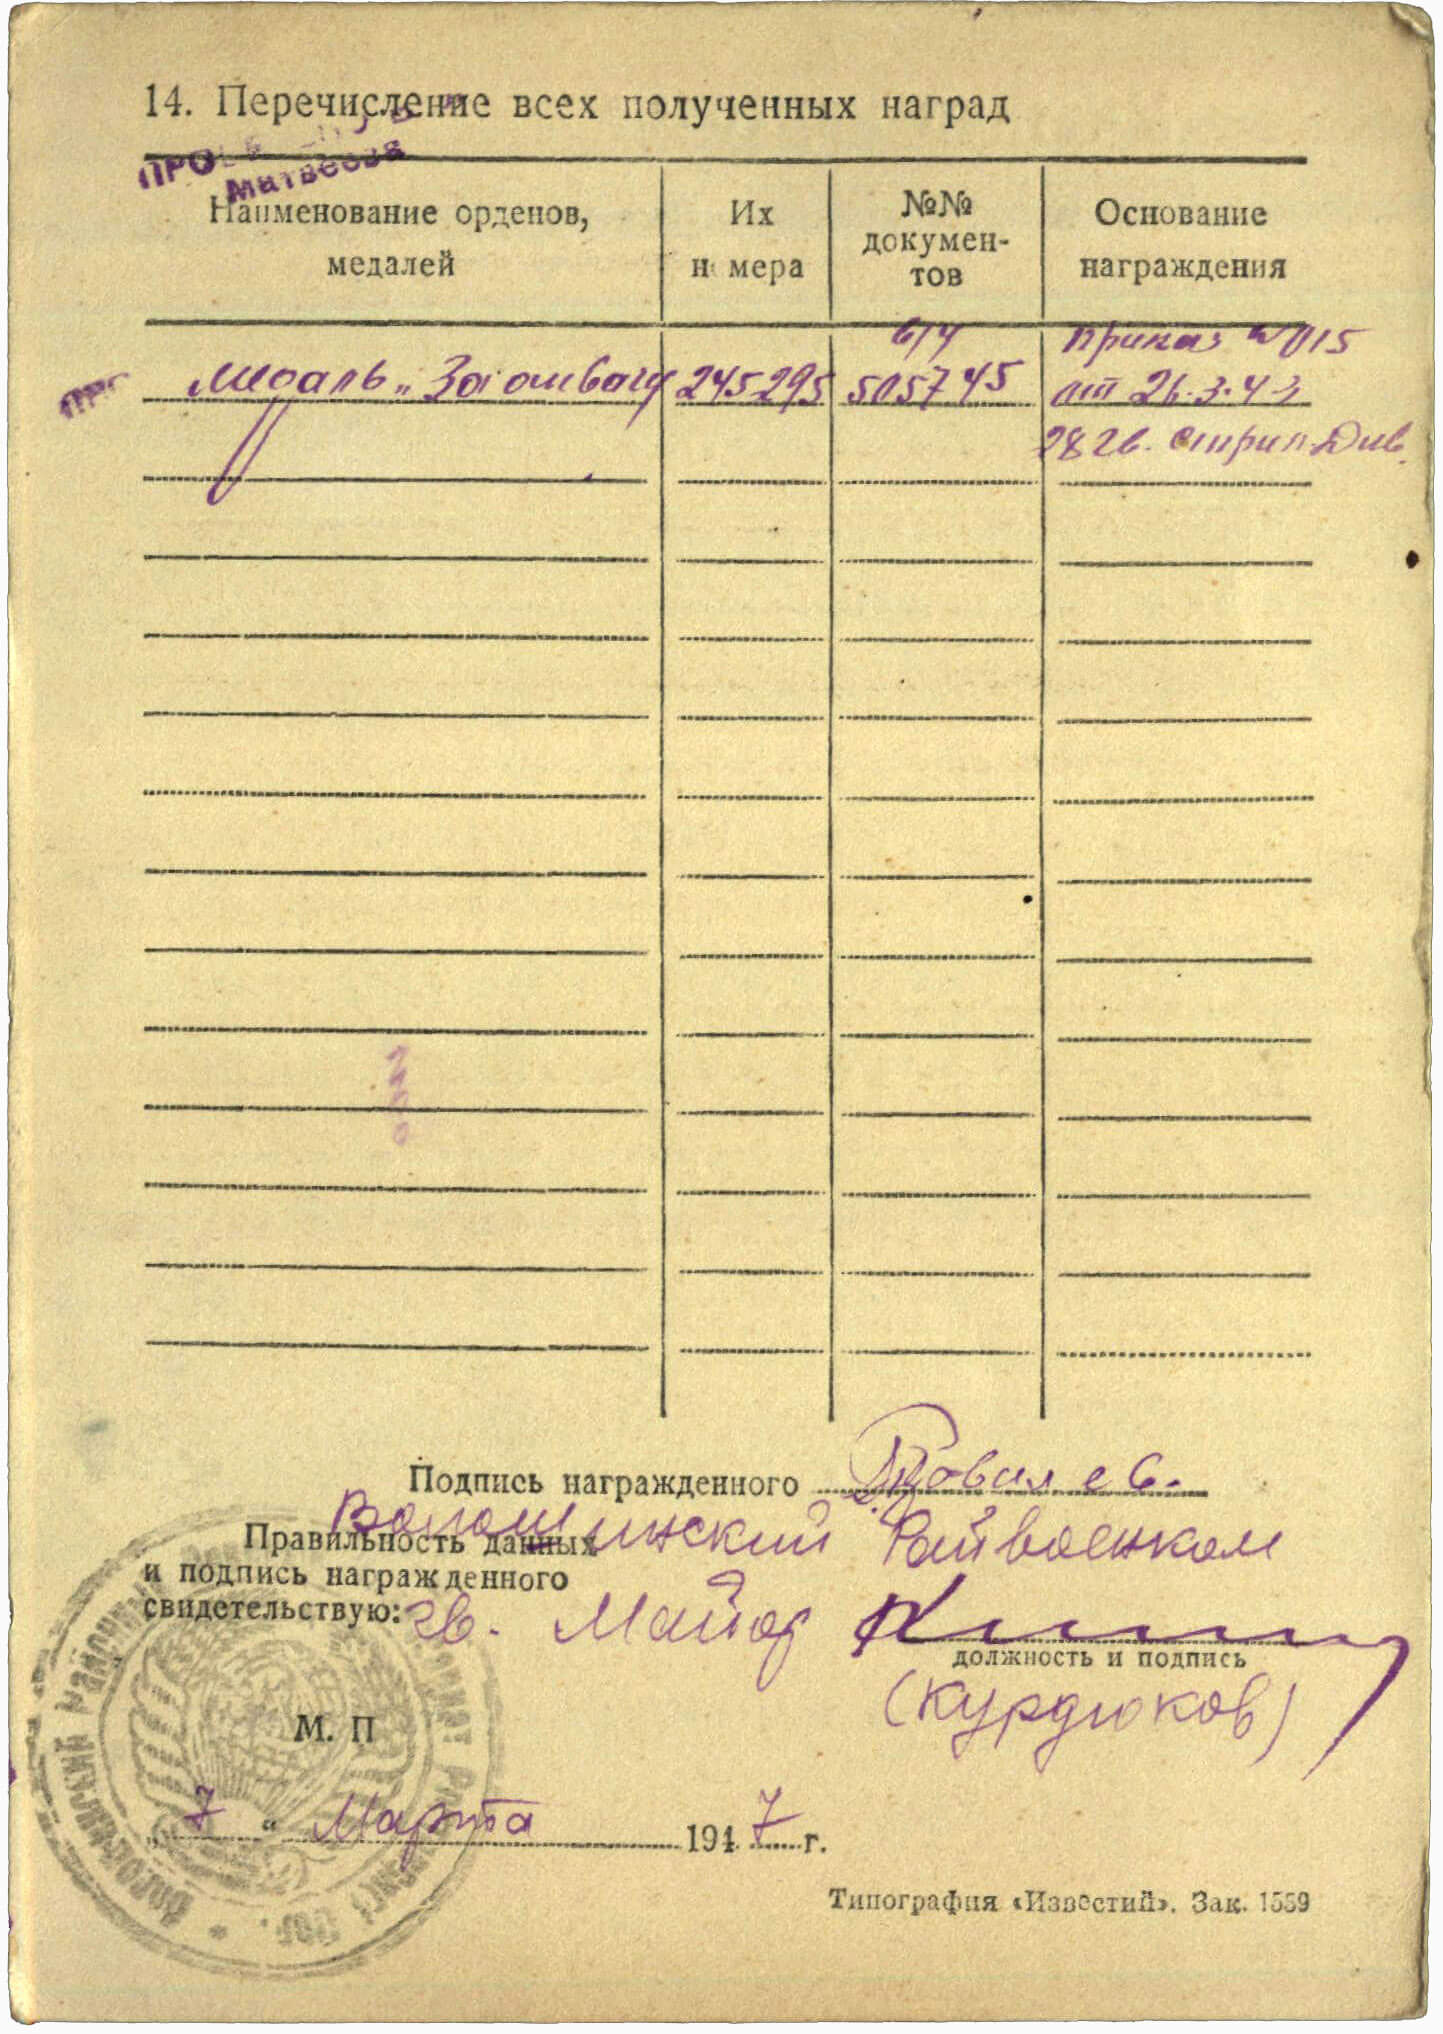 14. Перечисление всех полученных наград
Матвеева
Наименование орденов, медалей
Их номера
№№ документов
Основание награждения
Медаль „За отвагу
245295
б/у 505745
Приказ №015
от 26.3.43
28 гв. стрел. Див.
Подпись награжденного
Правильность данных
и подпись награжденного
свидетельствую:
Волошинский Райвоенком
гв. Майор
должность и подпись
(Курдюков)
М. П
„ 7 “ Марта 1947 г.
Типография «Известий». Зак. 1559